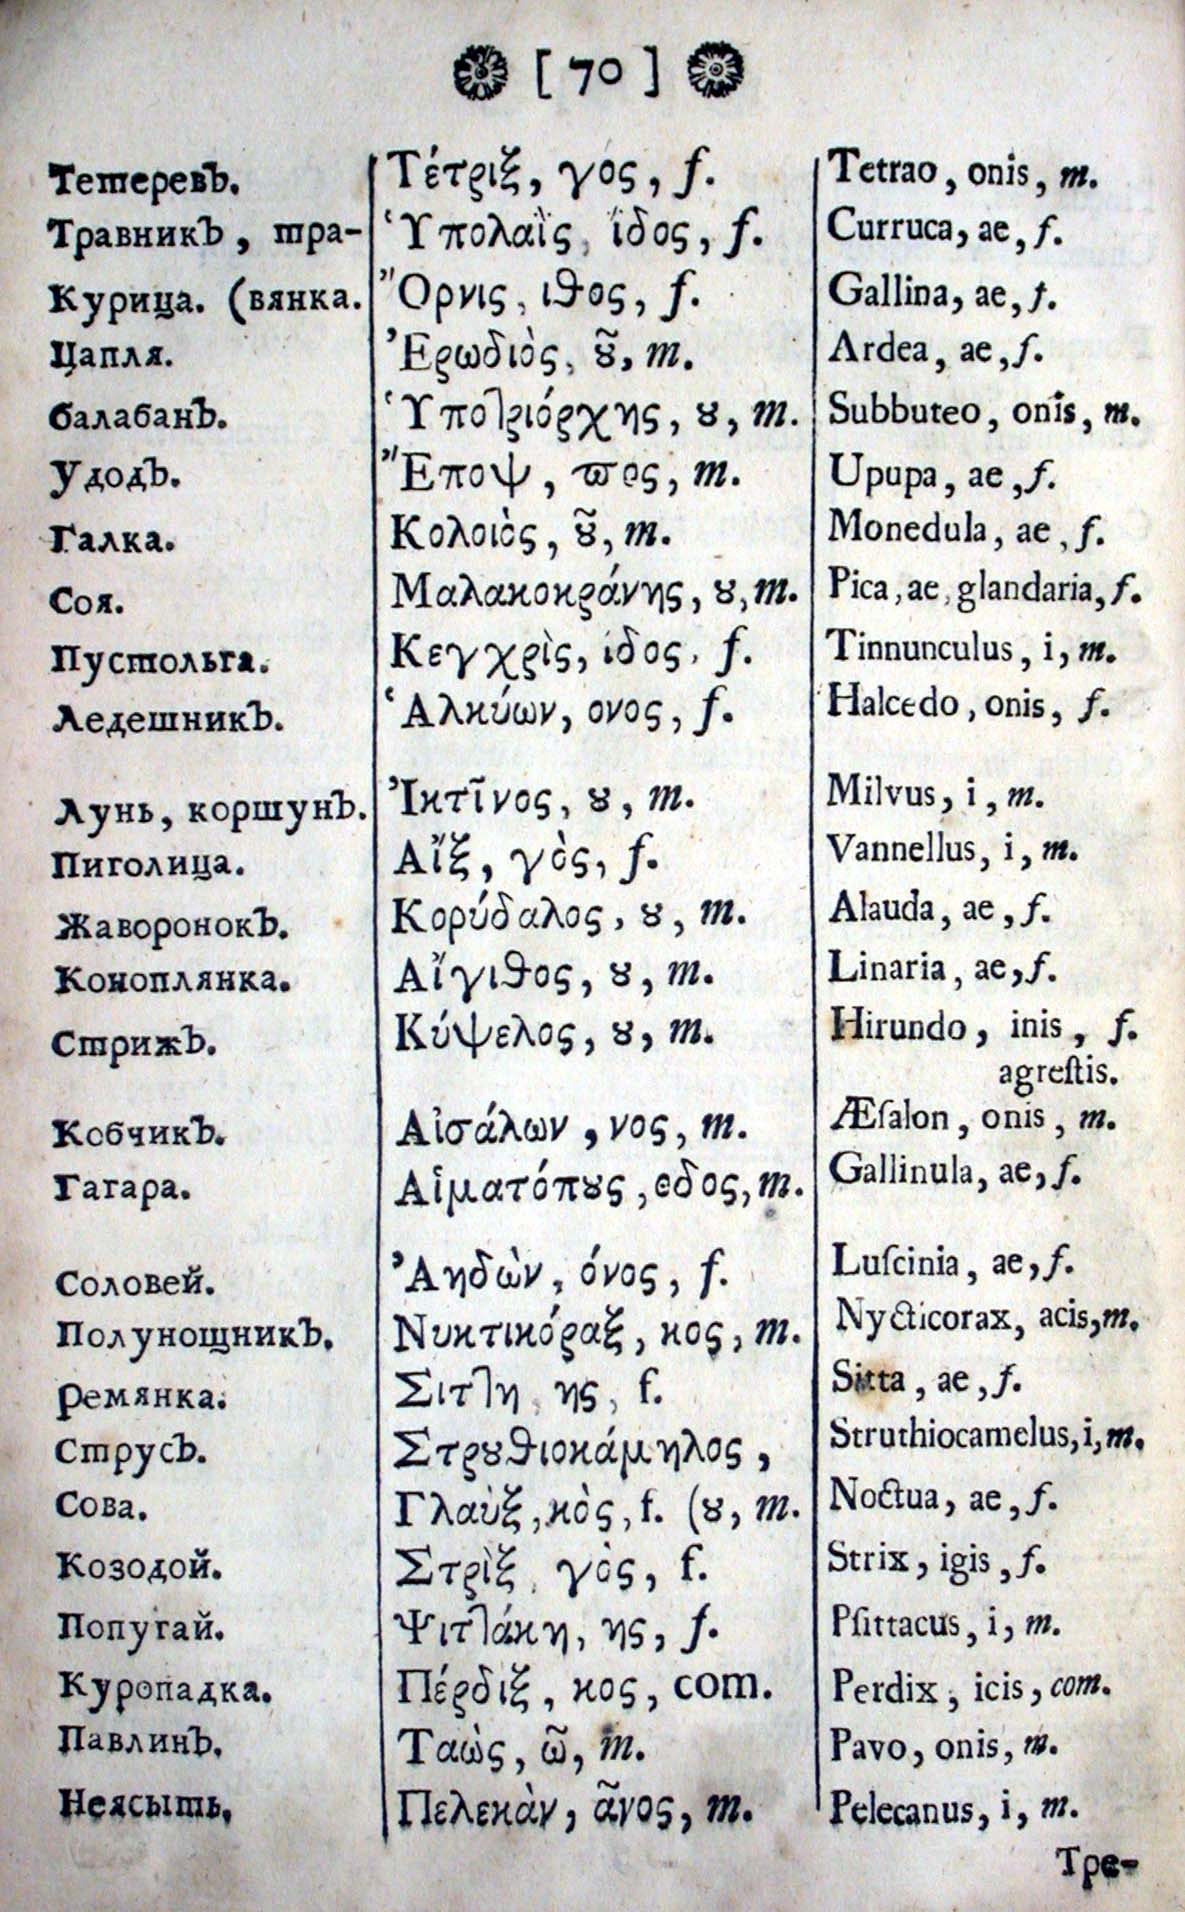 [ 70 ]
Тетеревъ. Τέτριξ, γος, f. Tetrao, onis, m.
Травникъ, тра- Ὑπολαῒς, ίδος, f. Curruca, ae, f.
Курица. (вянка. Ὄρνις, ιθος, f. Gallina, ae, f.
Цапля. Ἐρωδιὸς, ȣ͂, m. Ardea, ae, f.
балабанъ. Ὑποτριόρχης, ȣ, m. Subbuteo, onis, m.
Удодъ. Ἔποψ, πος, m. Upupa, ae, f.
Галка. Κολοιὸς, ȣ͂, m. Monedula, ae, f.
Соя. Μαλακοκράνης, ȣ, m. Pica, ae, glandaria, f.
Пустольга. Κεγχρὶς, ίδος, f. Tinnunculus, i, m.
Ледешникъ. Ἁλκύων, ονος, f. Halcedo, onis, f.
Лунь, коршунъ. Ἰκτῖνος, ȣ, m. Milvus, i, m.
Пиголица. Αἴξ, γὸς, f. Vannellus, i, m.
Жаворонокъ. Κορύδαλος, ȣ, m. Alauda, ae, f.
Коноплянка. Αἴγιθος, ȣ, m. Linaria, ae, f.
Стрижъ. Κύψελος, ȣ, m. Hirundo, inis, f.
agreſtis.
Кобчикъ. Αἰσάλων, νος, m. Æſalon, onis, m.
Гагара. Αἱματόπȣς, οδος, m. Gallinula, ae, f.
Соловей. Ἀηδὼν, όνος, f. Luſcinia, ae, f.
Полунощникъ. Νυκτικόραξ, κος, m. Nycticorax, acis, m.
Ремянка. Σιττη, ης, f. Sitta, ae, f.
Струсъ. Στρȣθιοκάμηλος, Struthiocamelus, i, m.
Сова. Γλαὺξ, κὸς, f. (ȣ, m. Noctua, ae, f.
Козодой. Στρὶξ, γὸς, f. Strix, igis, f.
Попугай. Ψιττάκη, ης, f. Pſittacus, i, m.
Куропадка. Πέρδιξ, κος, com. Perdix, icis, com.
Павлинъ. Ταὼς, ῶ, m. Pavo, onis, m.
Неясыть. Πελεκὰν, ᾶνος, m. Pelecanus, i, m.
Тре-